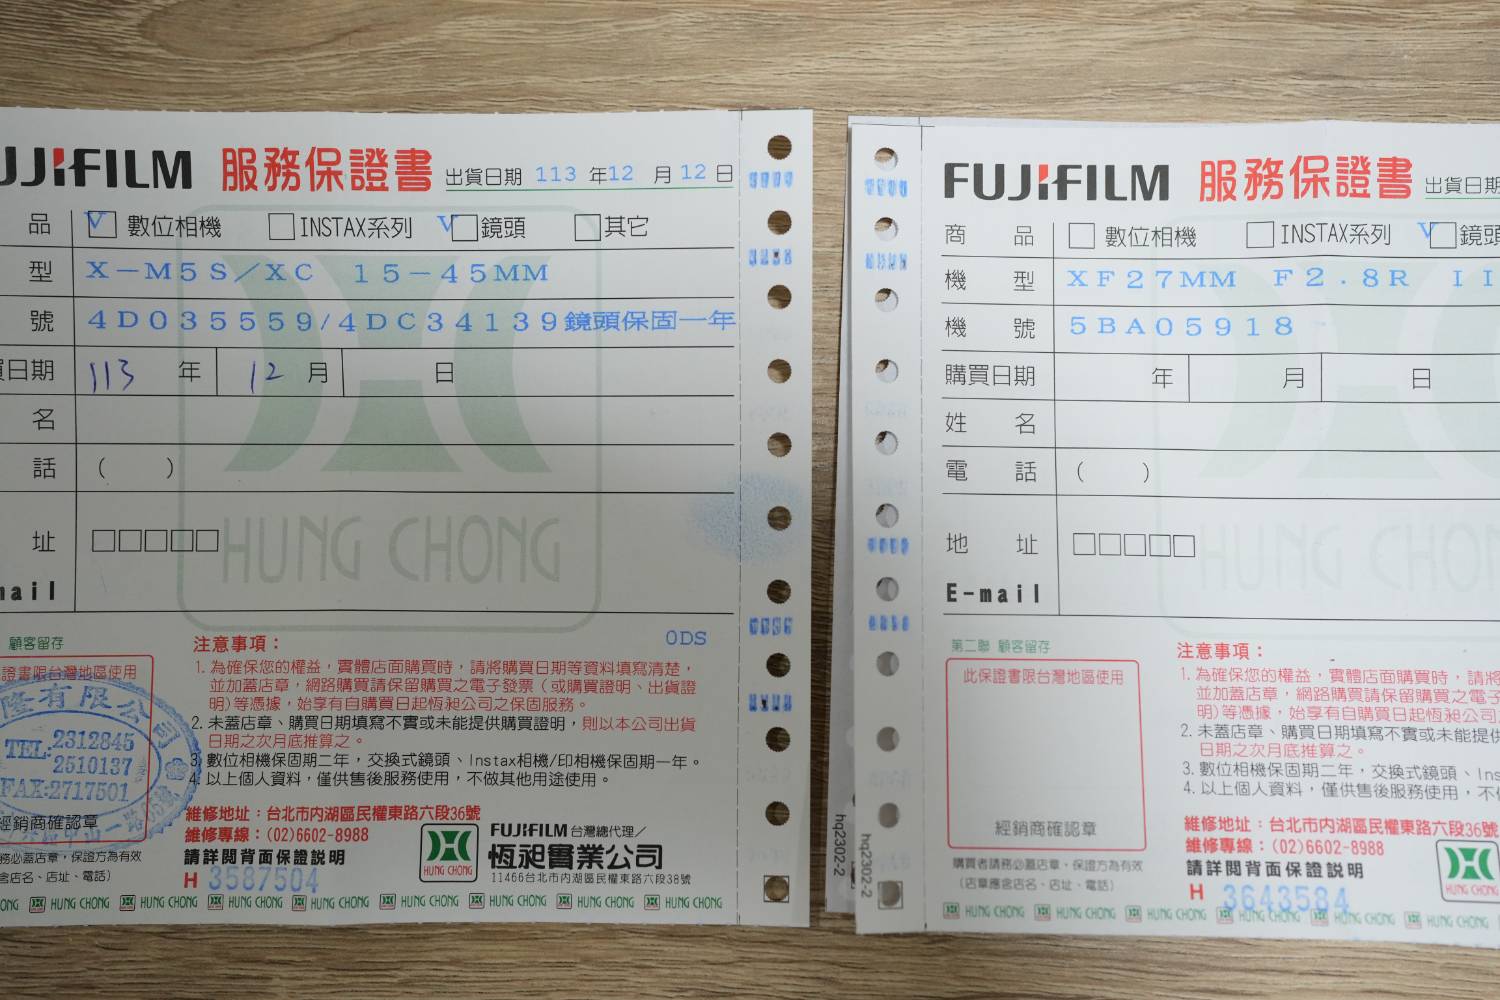 UJIFILM 服務保證書 出貨日期 113 年12 月 12 日
品 V 數位相機 INSTAX系列 V 鏡頭 其它
型 X-M5S/XC 15-45MM
號 4D035559/4DC34139鏡頭保固一年
買日期 113 年 12 月 日
名
話 ( )
址
mail
HUNG CHONG
顧客留存
ODS
證書限台灣地區使用
隆有限公司
TEL:2312845
2510137
FAX:2717501
經銷商確認章
務必蓋店章，保證方為有效
含店名、店址、電話)
注意事項：
1. 為確保您的權益，實體店面購買時，請將購買日期等資料填寫清楚，
並加蓋店章，網路購買請保留購買之電子發票（或購買證明、出貨證
明)等憑據，始享有自購買日起恆昶公司之保固服務。
2. 未蓋店章、購買日期填寫不實或未能提供購買證明，則以本公司出貨
日期之次月底推算之。
3. 數位相機保固期二年，交換式鏡頭、Instax相機/印相機保固期一年。
4. 以上個人資料，僅供售後服務使用，不做其他用途使用。
維修地址：台北市內湖區民權東路六段36號
維修專線：(02)6602-8988
請詳閱背面保證說明
H 3587504
HUNG CHONG
FUJIFILM 台灣總代理／
恆昶實業公司
11466台北市內湖區民權東路六段38號
ONG HUNG CHONG HUNG CHONG HUNG CHONG HUNG CHONG HUNG CHONG HUNG CHONG HUNG CHONG HUNG CHONG
hq2302-2
hq2302-2
FUJIFILM 服務保證書 出貨日期
商品 數位相機 INSTAX系列 V 鏡頭
機型 XF27MM F2.8R II
機號 5BA05918
購買日期 年 月 日
姓名
電話 ( )
地址
E-mail
HUNG CHON
第二聯 顧客留存
此保證書限台灣地區使用
經銷商確認章
購買者請務必蓋店章，保證方為有效
(店章應含店名、店址、電話)
注意事項：
1. 為確保您的權益，實體店面購買時，請將
並加蓋店章，網路購買請保留購買之電子
明)等憑據，始享有自購買日起恆昶公司
2. 未蓋店章、購買日期填寫不實或未能提供
日期之次月底推算之。
3. 數位相機保固期二年，交換式鏡頭、Ins
4. 以上個人資料，僅供售後服務使用，不
維修地址：台北市內湖區民權東路六段36號
維修專線：(02)6602-8988
請詳閱背面保證說明
H 3643584
HUNG CHONG
HUNG CHONG HUNG CHONG HUNG CHONG HUNG CHONG HUNG CHONG HUNG CHONG